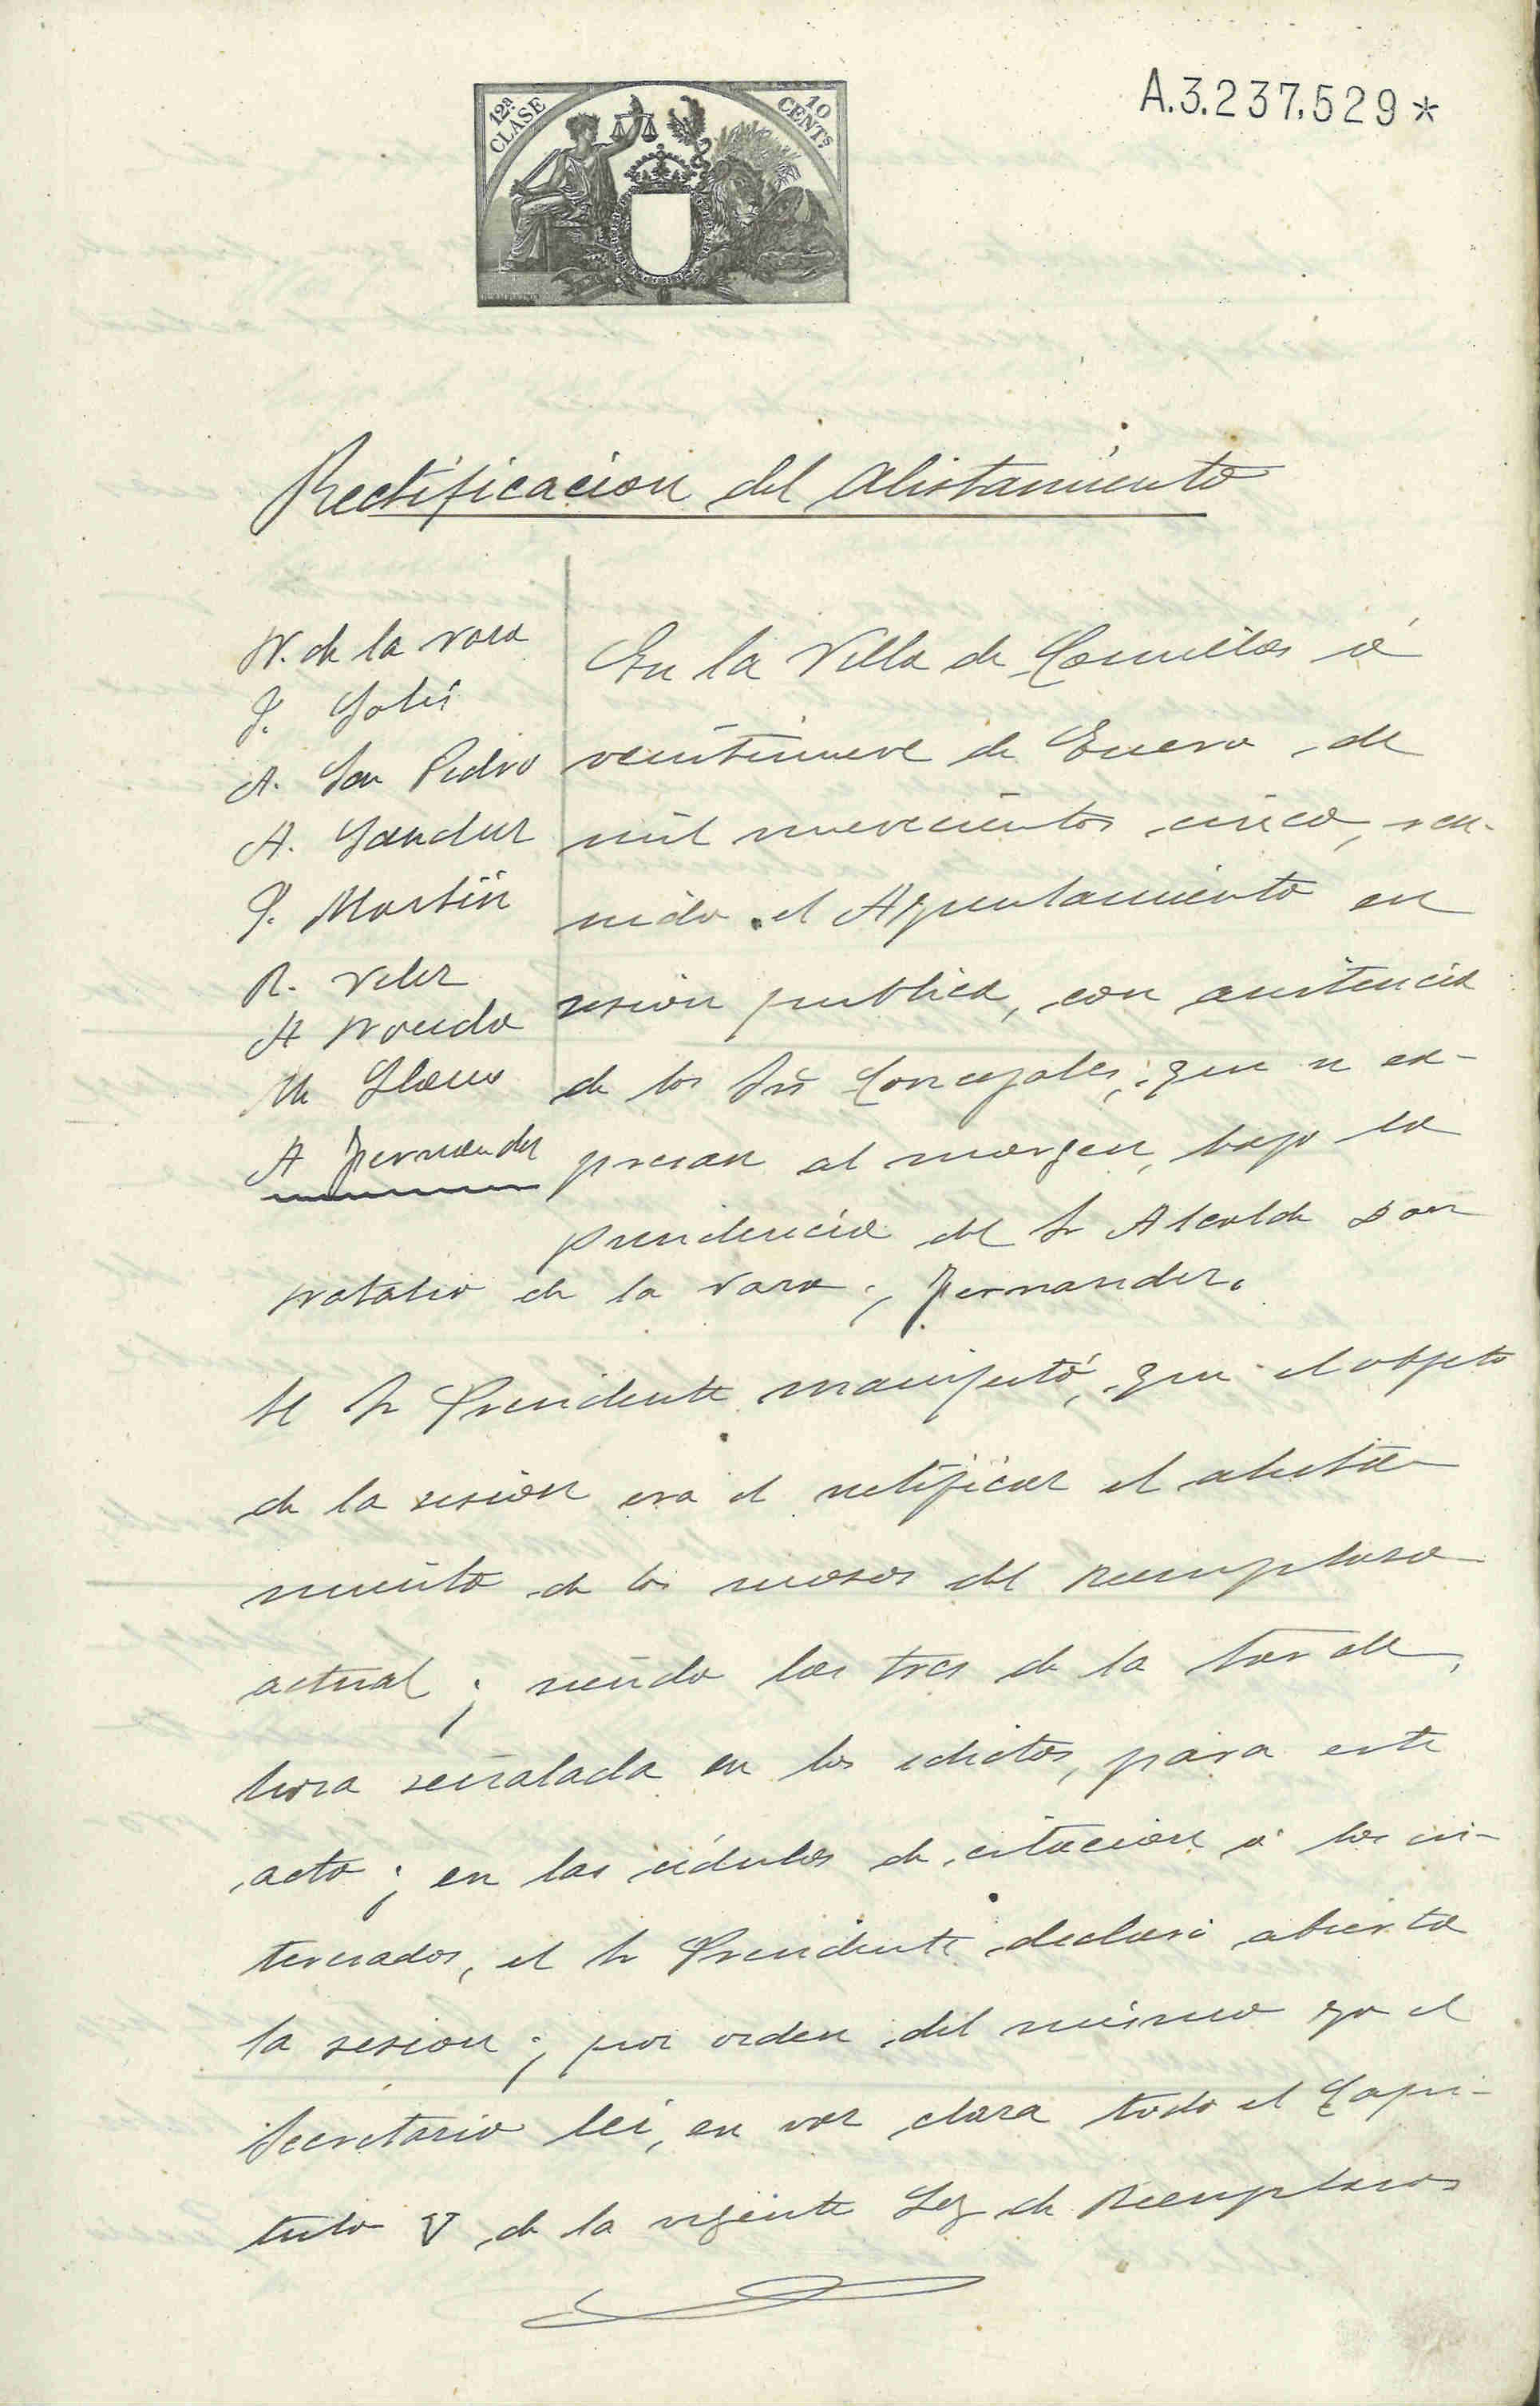 12ª CLASE
10 CENTS
A.3.237.529*
Rectificacion del Alistamiento
N. de la Vara
J. Solis
A. San Pedro
A. Sanchez
P. Martin
R. Velez
A
M Llano
A Fernandez
En la Villa de Comillas á
veintinueve de Enero de
mil novecientos cinco, reu-
nido el Ayuntamiento en
sesion publica, con asistencia
de los Srs Concejales, que se ex-
presan al margen, bajo la
presidencia del Sr Alcalde Don
Natalio de la Vara y Fernandez.
El Sr Presidente manifestó, que el objeto
de la sesion era el rectificar el alista-
miento de los mozos del Reemplazo
actual; siendo las tres de la tarde,
hora señalada en los edictos, para este
acto y en las cédulas de citacion á los in-
teresados, el Sr Presidente declaró abierta
la sesion y por orden del mismo yo el
Secretario leí, en voz clara todo el Capi-
tulo V de la vigente Ley de Reemplazos